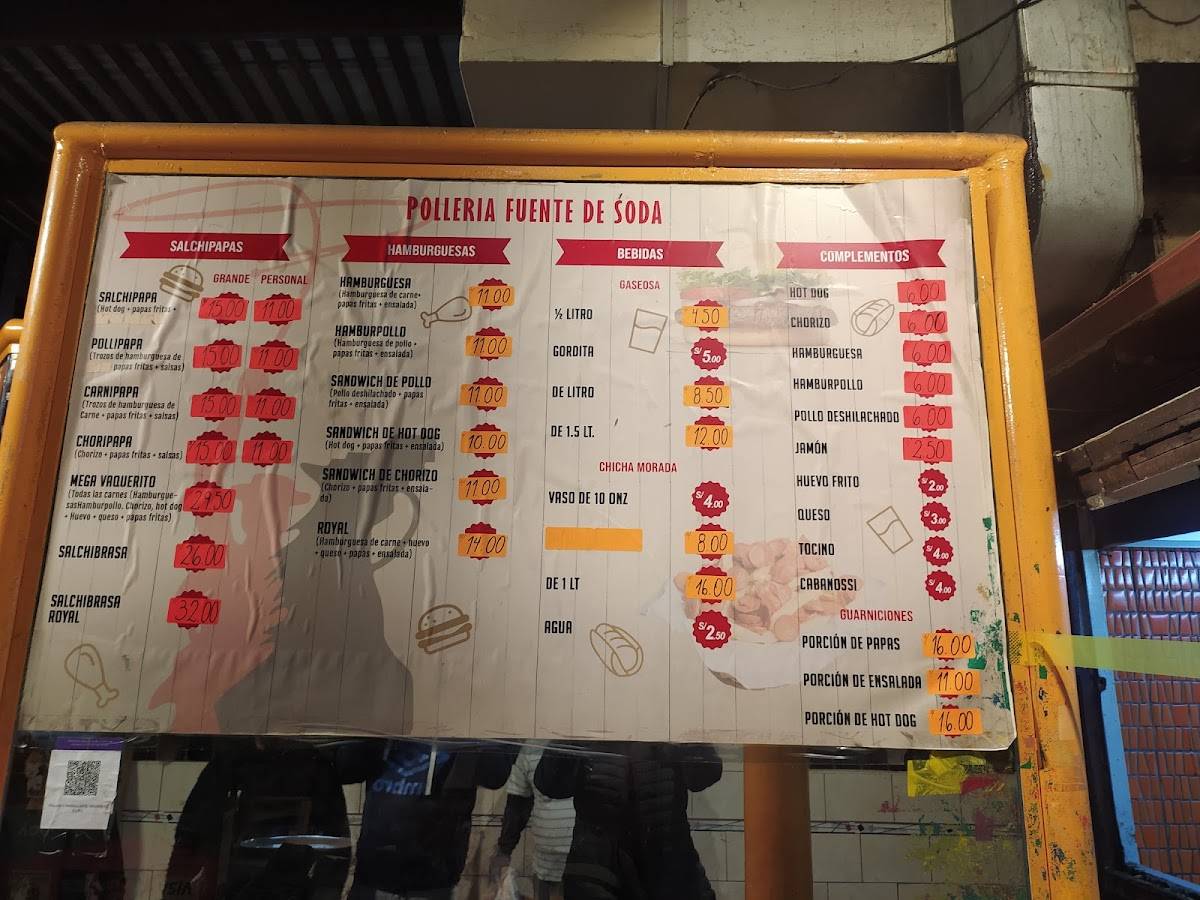 POLLERIA FUENTE DE SODA
SALCHIPAPAS
GRANDE PERSONAL
SALCHIPAPA 15.00 11.00
(Hot dog + papas fritas +
POLLIPAPA 15.00 11.00
(Trozos de hamburguesa de
papas fritas + salsas)
CARNIPAPA 15.00 11.00
(Trozos de hamburguesa de
Carne + papas fritas + salsas)
CHORIPAPA 15.00 11.00
(Chorizo + papas fritas + salsas)
MEGA VAQUERITO 29.50
(Todas las carnes (Hamburgue-
sasHamburpollo. Chorizo, hot dog
+ Huevo + queso + papas fritas)
SALCHIBRASA 26.00
SALCHIBRASA
ROYAL 32.00
HAMBURGUESAS
HAMBURGUESA 11.00
(Hamburguesa de carne+
papas fritas + ensalada)
HAMBURPOLLO 11.00
(Hamburguesa de pollo +
papas fritas + ensalada)
SANDWICH DE POLLO 11.00
(Pollo deshilachado + papas
fritas + ensalada)
SANDWICH DE HOT DOG 10.00
(Hot dog + papas fritas + ensalada)
SANDWICH DE CHORIZO 11.00
(Chorizo + papas fritas + ensala-
da)
ROYAL 14.00
(Hamburguesa de carne + huevo
+ queso + papas + ensalada)
BEBIDAS
GASEOSA
½ LITRO 4.50
GORDITA S/ 5.00
DE LITRO 8.50
DE 1.5 LT. 12.00
CHICHA MORADA
VASO DE 10 ONZ S/ 4.00
8.00
DE 1 LT 16.00
AGUA S/ 2.50
COMPLEMENTOS
HOT DOG 6.00
CHORIZO 6.00
HAMBURGUESA 6.00
HAMBURPOLLO 6.00
POLLO DESHILACHADO 6.00
JAMÓN 2.50
HUEVO FRITO S/ 2.00
QUESO S/ 3.00
TOCINO S/ 4.00
CABANOSSI S/ 4.00
GUARNICIONES
PORCIÓN DE PAPAS 16.00
PORCIÓN DE ENSALADA 11.00
PORCIÓN DE HOT DOG 16.00